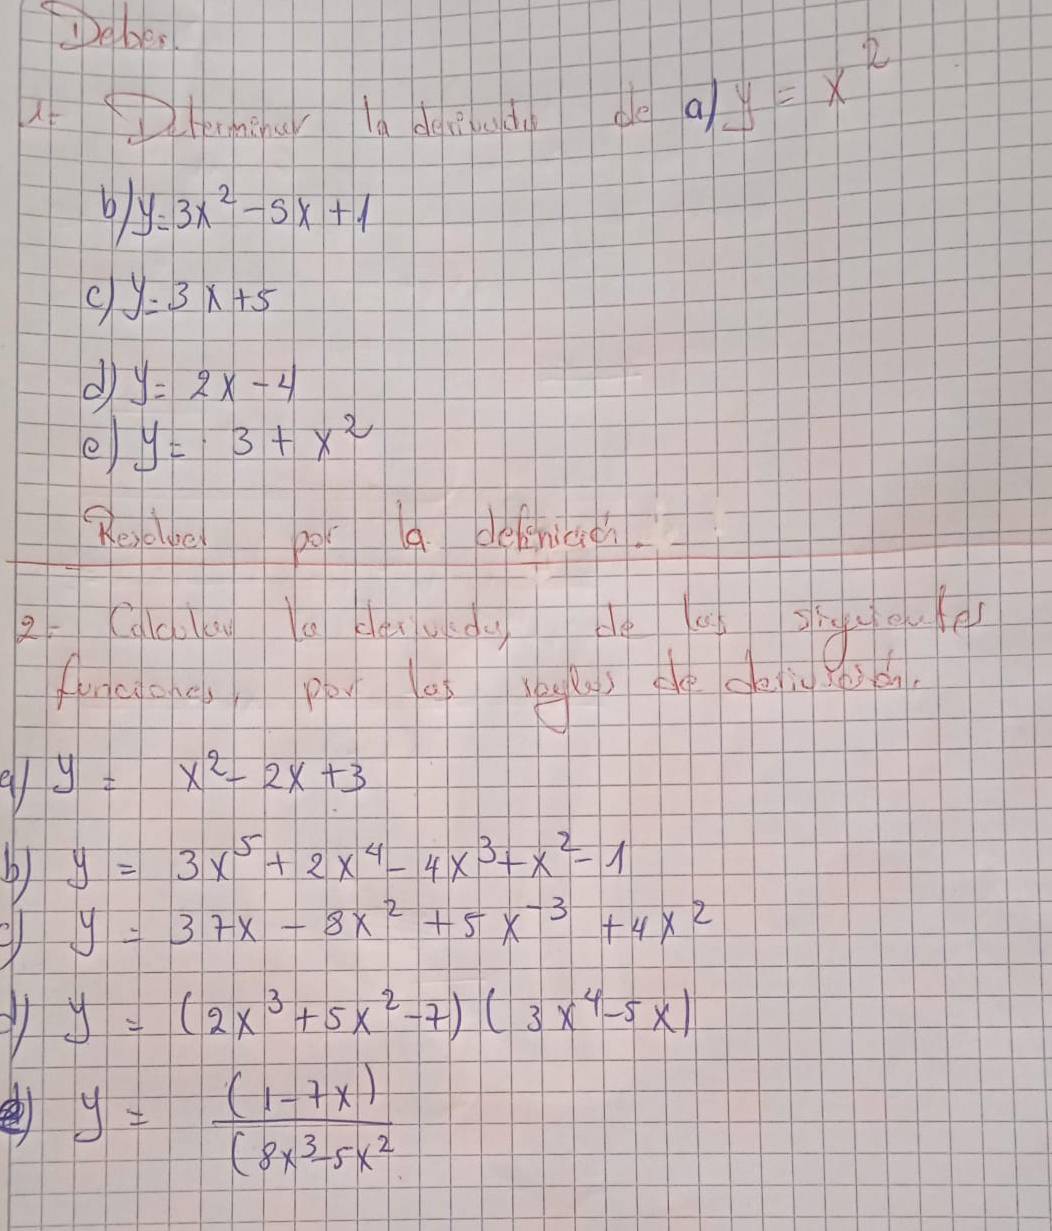 Deber.
1- Determinar la derivada de a) y = x²
b) y=3x²-5x+1
c) y=3x+5
d) y= 2x-4
e) y= 3+x²
Resolver por la definición.
2- Calcular la derivada de las siguientes
funciones, por las reglas de derivación.
a) y = x²-2x+3
b) y = 3x⁵+2x⁴-4x³+x²-1
c) y = 37x-8x²+5x⁻³+4x²
d) y = (2x³+5x²-7)(3x⁴-5x)
e) y = (1-7x)
(8x³-5x²